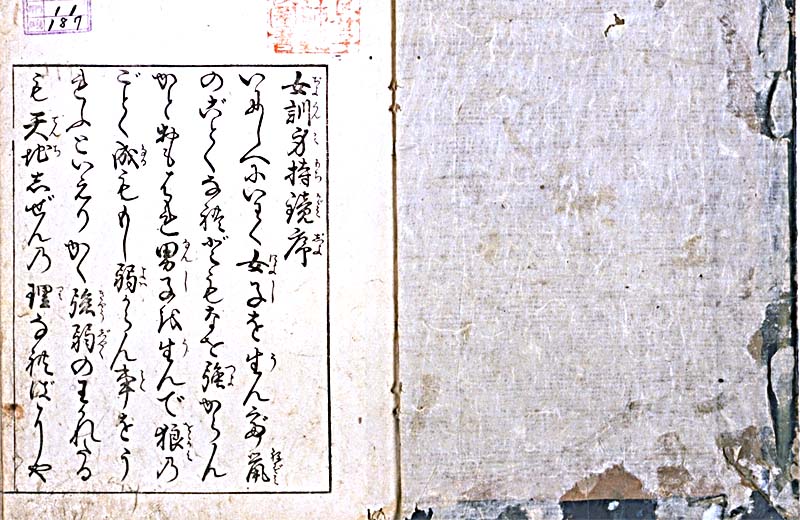 女訓身持鏡序
いにしへにいわく女子を生ん事鼠
のごとくなれどもなを強からん
かとおもはれ男子を生んで狼の
ごとく成ももし弱からん事をう
れふといえりかく強弱のわかれたる
も天地しぜんの理なればにや